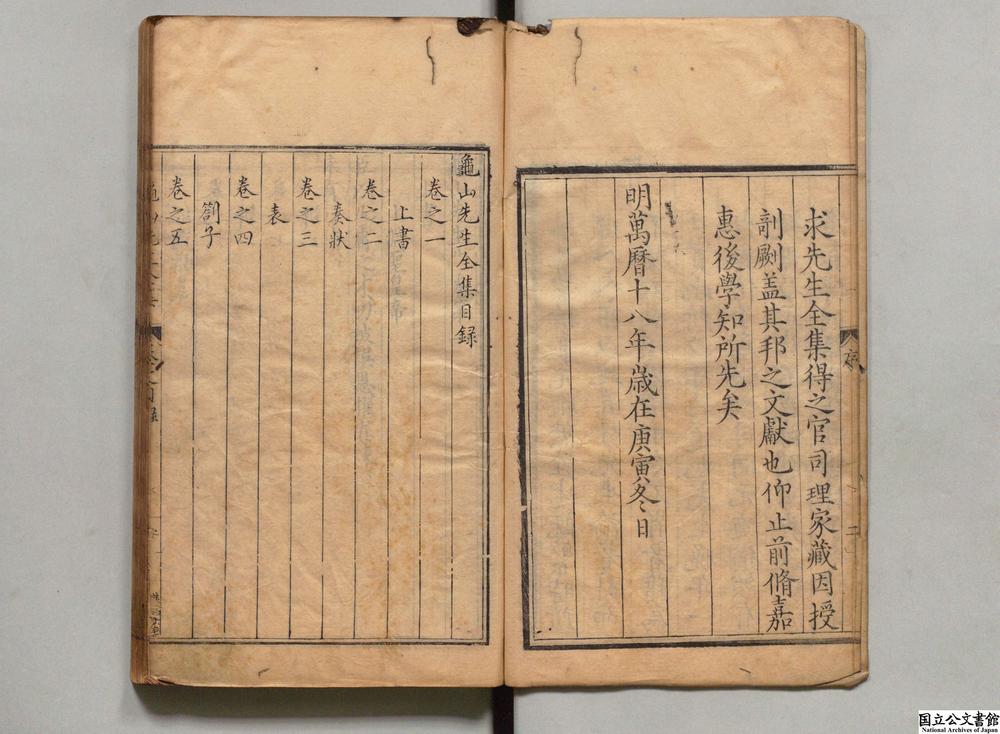 求先生全集得之官司理家藏因授
剞劂盖其邦之文獻也仰止前脩嘉
惠後學知所先矣
明萬曆十八年歲在庚寅冬日
龜山先生全集目録
卷之一
上書
卷之二
奏狀
卷之三
表
卷之四
劄子
卷之五
国立公文書館
National Archives of Japan